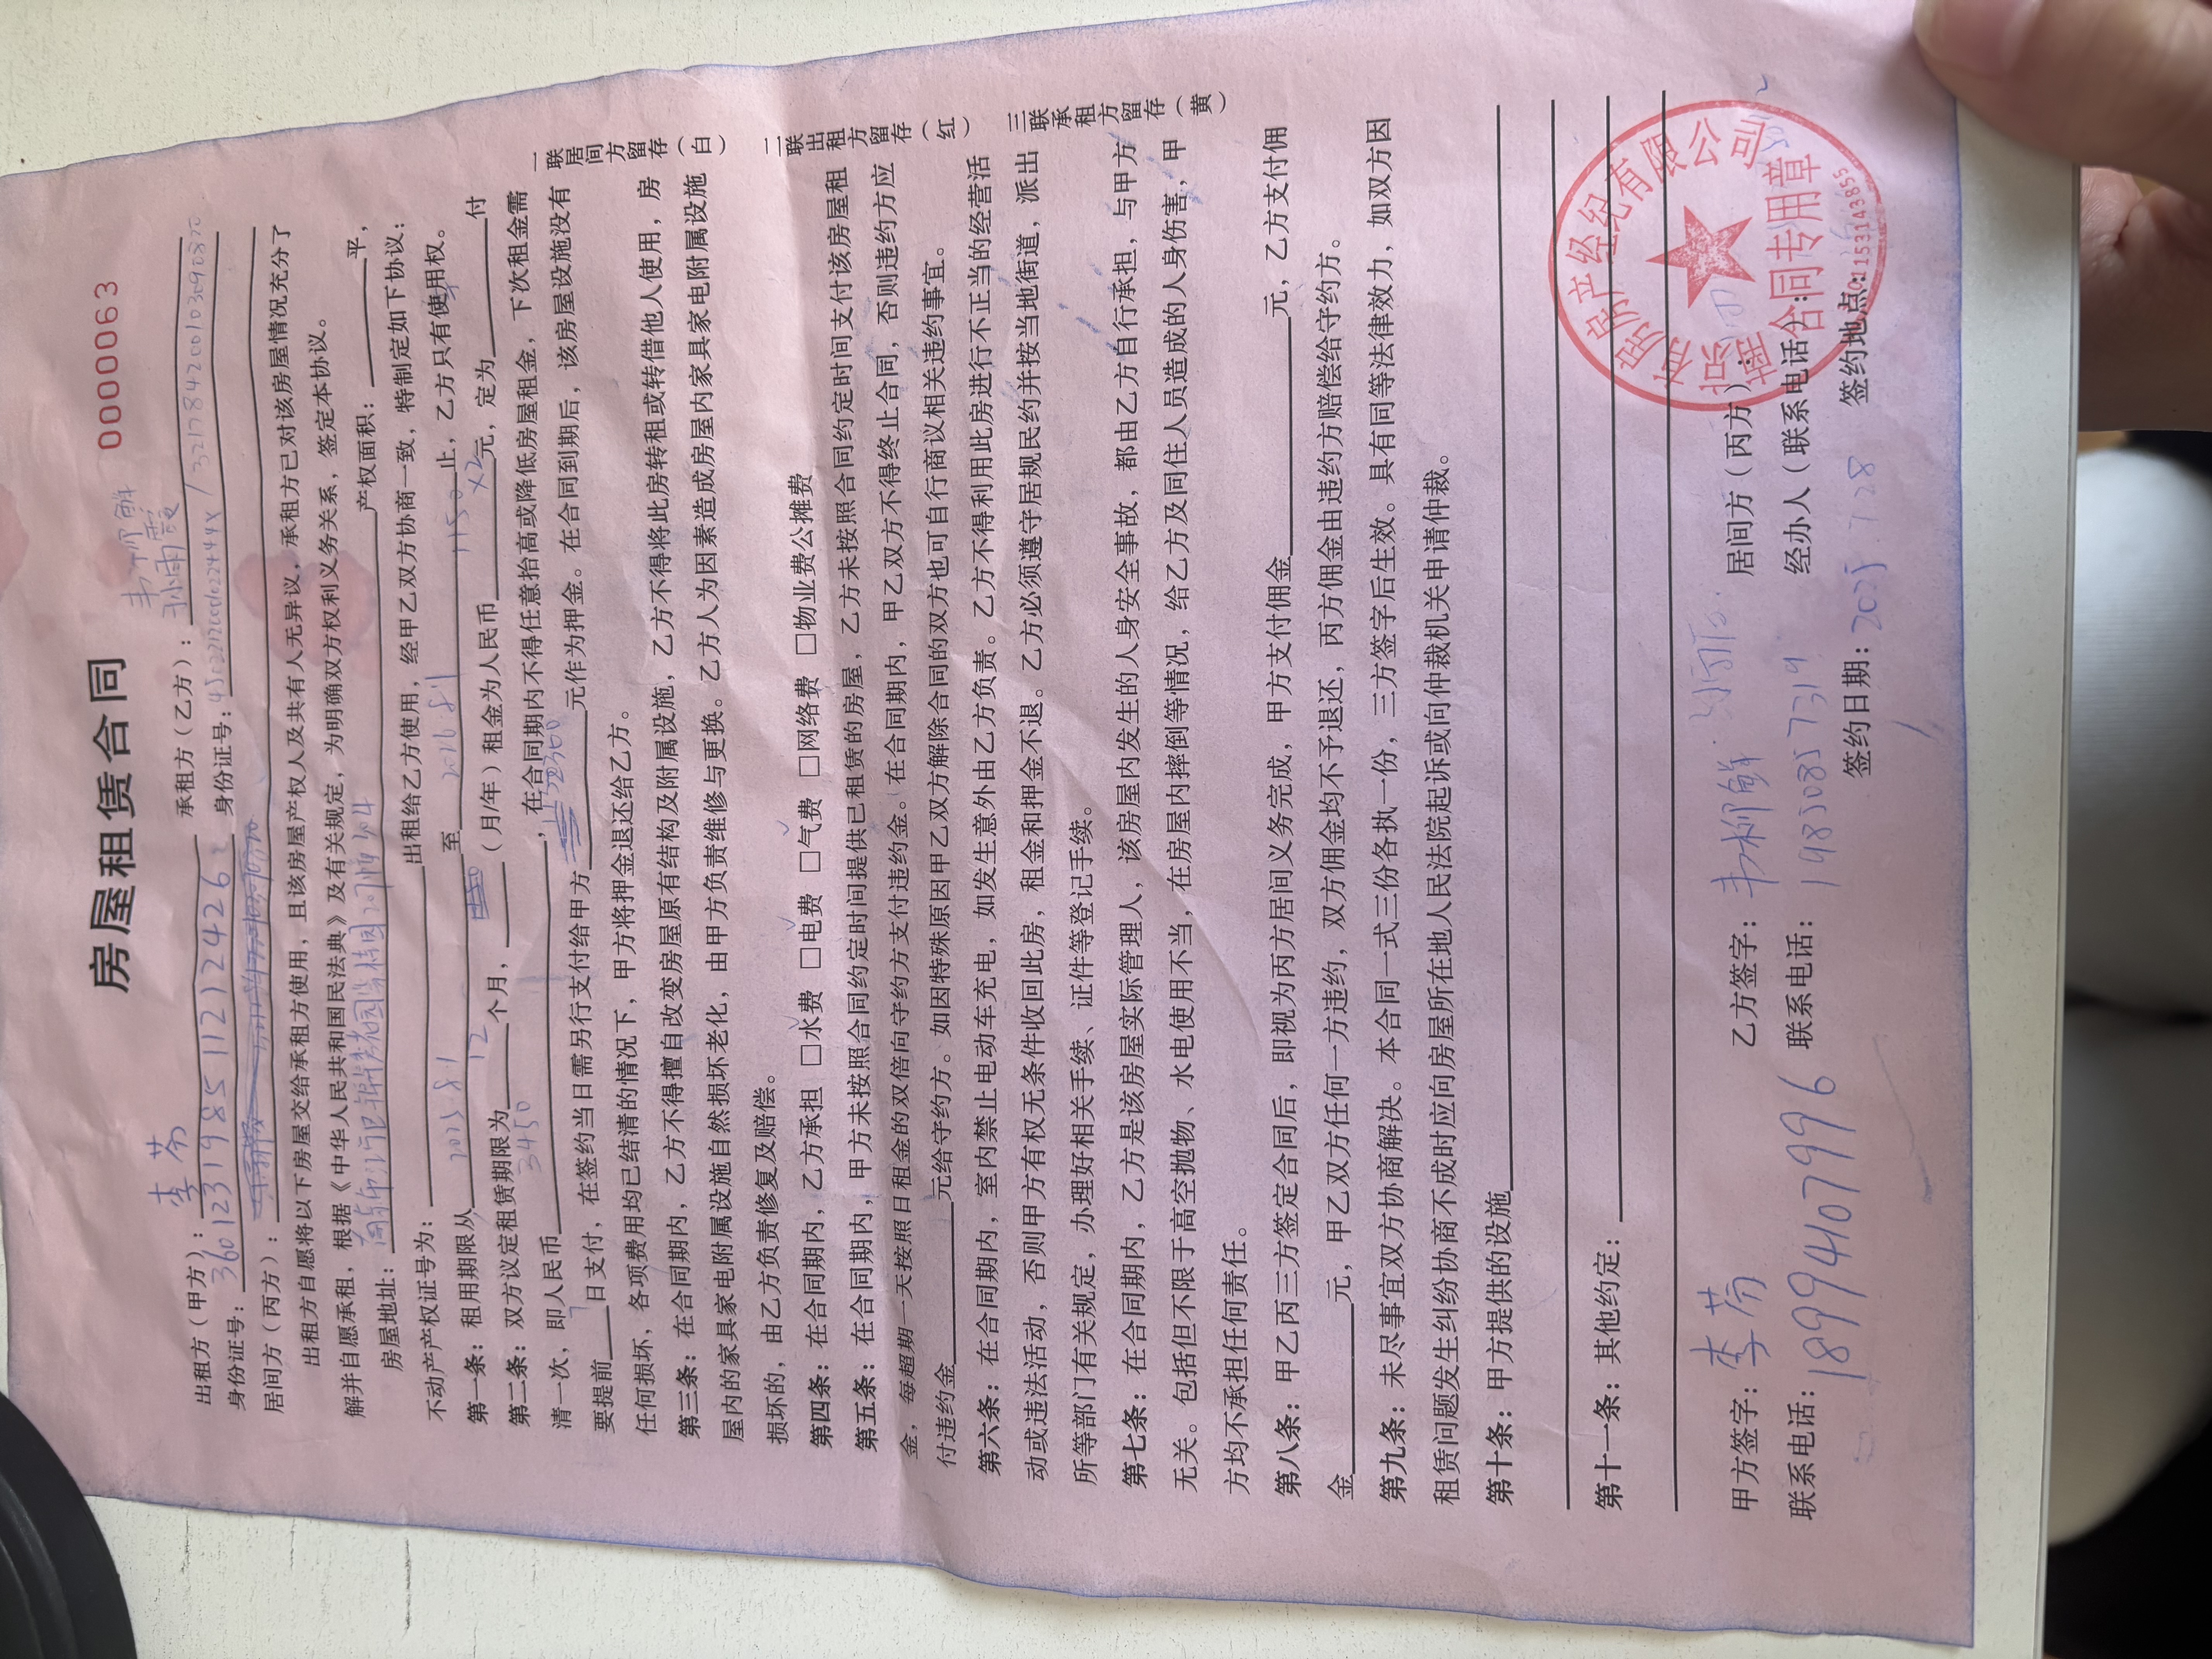 房屋租赁合同 0000063
出租方（甲方）：李芬 承租方（乙方）：孙雨霞
身份证号：身份证号：
居间方（丙方）：
出租方自愿将以下房屋交给承租方使用，且该房屋产权人及共有人无异议，承租方已对该房屋情况充分了
解并自愿承租，根据《中华人民共和国民法典》及有关规定，为明确双方权利义务关系，签定本协议。
房屋地址： 产权面积：平，
不动产产权证号为：出租给乙方使用，经甲乙双方协商一致，特制定如下协议：
第一条：租用期限从2025.8.1至2026.8.1止，乙方只有使用权。
第二条：双方议定租赁期限为12个月，（月/年）租金为人民币1150 x2元，定为付
清一次，即人民币3450，在合同期内不得任意抬高或降低房屋租金，下次租金需
要提前7日支付，在签约当日需另行支付给甲方2300元作为押金。在合同到期后，该房屋设施没有
任何损坏、各项费用均已结清的情况下，甲方将押金退还给乙方。
第三条：在合同期内，乙方不得擅自改变房屋原有结构及附属设施，乙方不得将此房转租或转借他人使用，房
屋内的家具家电附属设施自然损坏老化，由甲方负责维修与更换。乙方人为因素造成房屋内家具家电附属设施
损坏的，由乙方负责修复及赔偿。
第四条：在合同期内，乙方承担 □水费 □电费 □气费 □网络费 □物业费公摊费
第五条：在合同期内，甲方未按照合同约定时间提供已租赁的房屋，乙方未按照合同约定时间支付该房屋租
金，每超期一天按照日租金的双倍向守约方支付违约金。在合同期内，甲乙双方不得终止合同，否则违约方应
付违约金元给守约方。如因特殊原因甲乙双方解除合同的双方也可自行商议相关违约事宜。
第六条：在合同期内，室内禁止电动车充电，如发生意外由乙方负责。乙方不得利用此房进行不正当的经营活
动或违法活动，否则甲方有权无条件收回此房，租金和押金不退。乙方必须遵守居规民约并按当地街道，派出
所等部门有关规定，办理好相关手续、证件等登记手续。
第七条：在合同期内，乙方是该房屋实际管理人，该房屋内发生的人身安全事故，都由乙方自行承担，与甲方
无关。包括但不限于高空抛物、水电使用不当，在房屋内摔倒等情况，给乙方及同住人员造成的人身伤害，甲
方均不承担任何责任。
第八条：甲乙丙三方签定合同后，即视为丙方居间义务完成，甲方支付佣金元，乙方支付佣
金元，甲乙双方任何一方违约，双方佣金均不予退还，丙方佣金由违约方赔偿给守约方。
第九条：未尽事宜双方协商解决。本合同一式三份各执一份，三方签字后生效。具有同等法律效力，如双方因
租赁问题发生纠纷协商不成时应向房屋所在地人民法院起诉或向仲裁机关申请仲裁。
第十条：甲方提供的设施
第十一条：其他约定：
甲方签字：李芬 乙方签字： 居间方（丙方）：
联系电话：18994107996 联系电话：19850857319 经办人（联系电话）：
签约日期：2025 7.28 签约地点：
一联居间方留存（白）
二联出租方留存（红）
三联承租方留存（黄）
房地产经纪有限公司
合同专用章